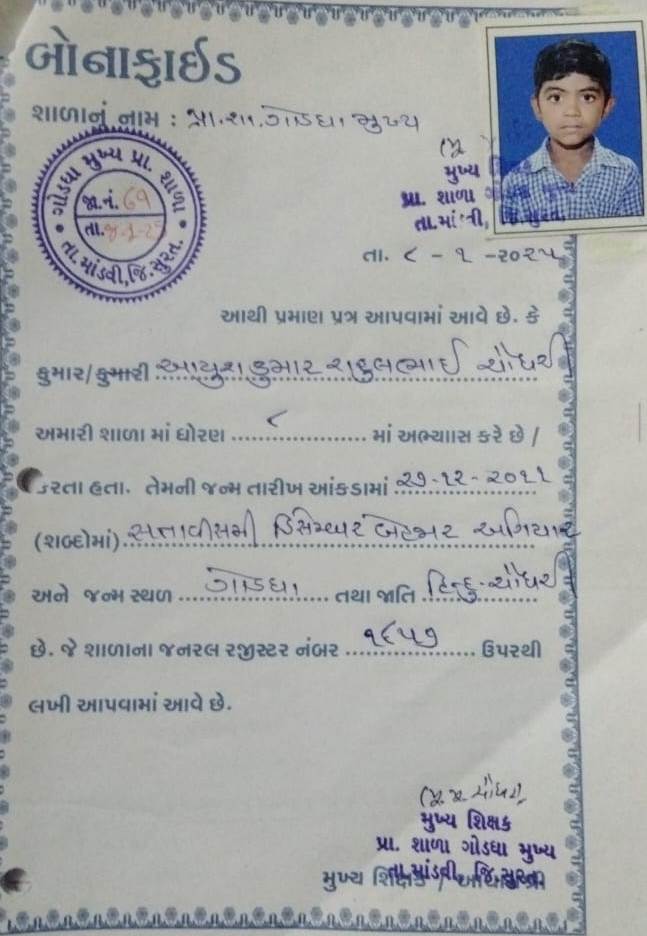 બોનાફાઈડ
શાળાનું નામ : પ્રા.શા. ગોડધા મુખ્ય
ગોડધા મુખ્ય પ્રા. શાળા
જા.નં. 69
તા.
તા. માંડવી, જિ. સુરત.
મુખ્ય
પ્રા. શાળા
તા.માં વી, જિ.સુરત.
તા. ૮ - ૧ - ૨૦૨૫
આથી પ્રમાણ પત્ર આપવામાં આવે છે. કે
કુમાર/કુમારી આયુશકુમાર રાહુલભાઈ ચૌધરી
અમારી શાળા માં ધોરણ ૮ માં અભ્યાાસ કરે છે /
કરતા હતા. તેમની જન્મ તારીખ આંકડામાં ૨૭-૧૨-૨૦૧૧
(શબ્દોમાં) સત્તાવીસમી ડિસેમ્બર બેહજાર અગિયાર
અને જન્મ સ્થળ ગોડધા તથા જાતિ હિન્દુ-ચૌધરી
છે. જે શાળાના જનરલ રજીસ્ટર નંબર ૧૬૫૭ ઉપરથી
લખી આપવામાં આવે છે.
મુખ્ય શિક્ષક
પ્રા. શાળા ગોડધા મુખ્ય
તા.માંડવી, જિ.સુરત.
મુખ્ય શિક્ષક /